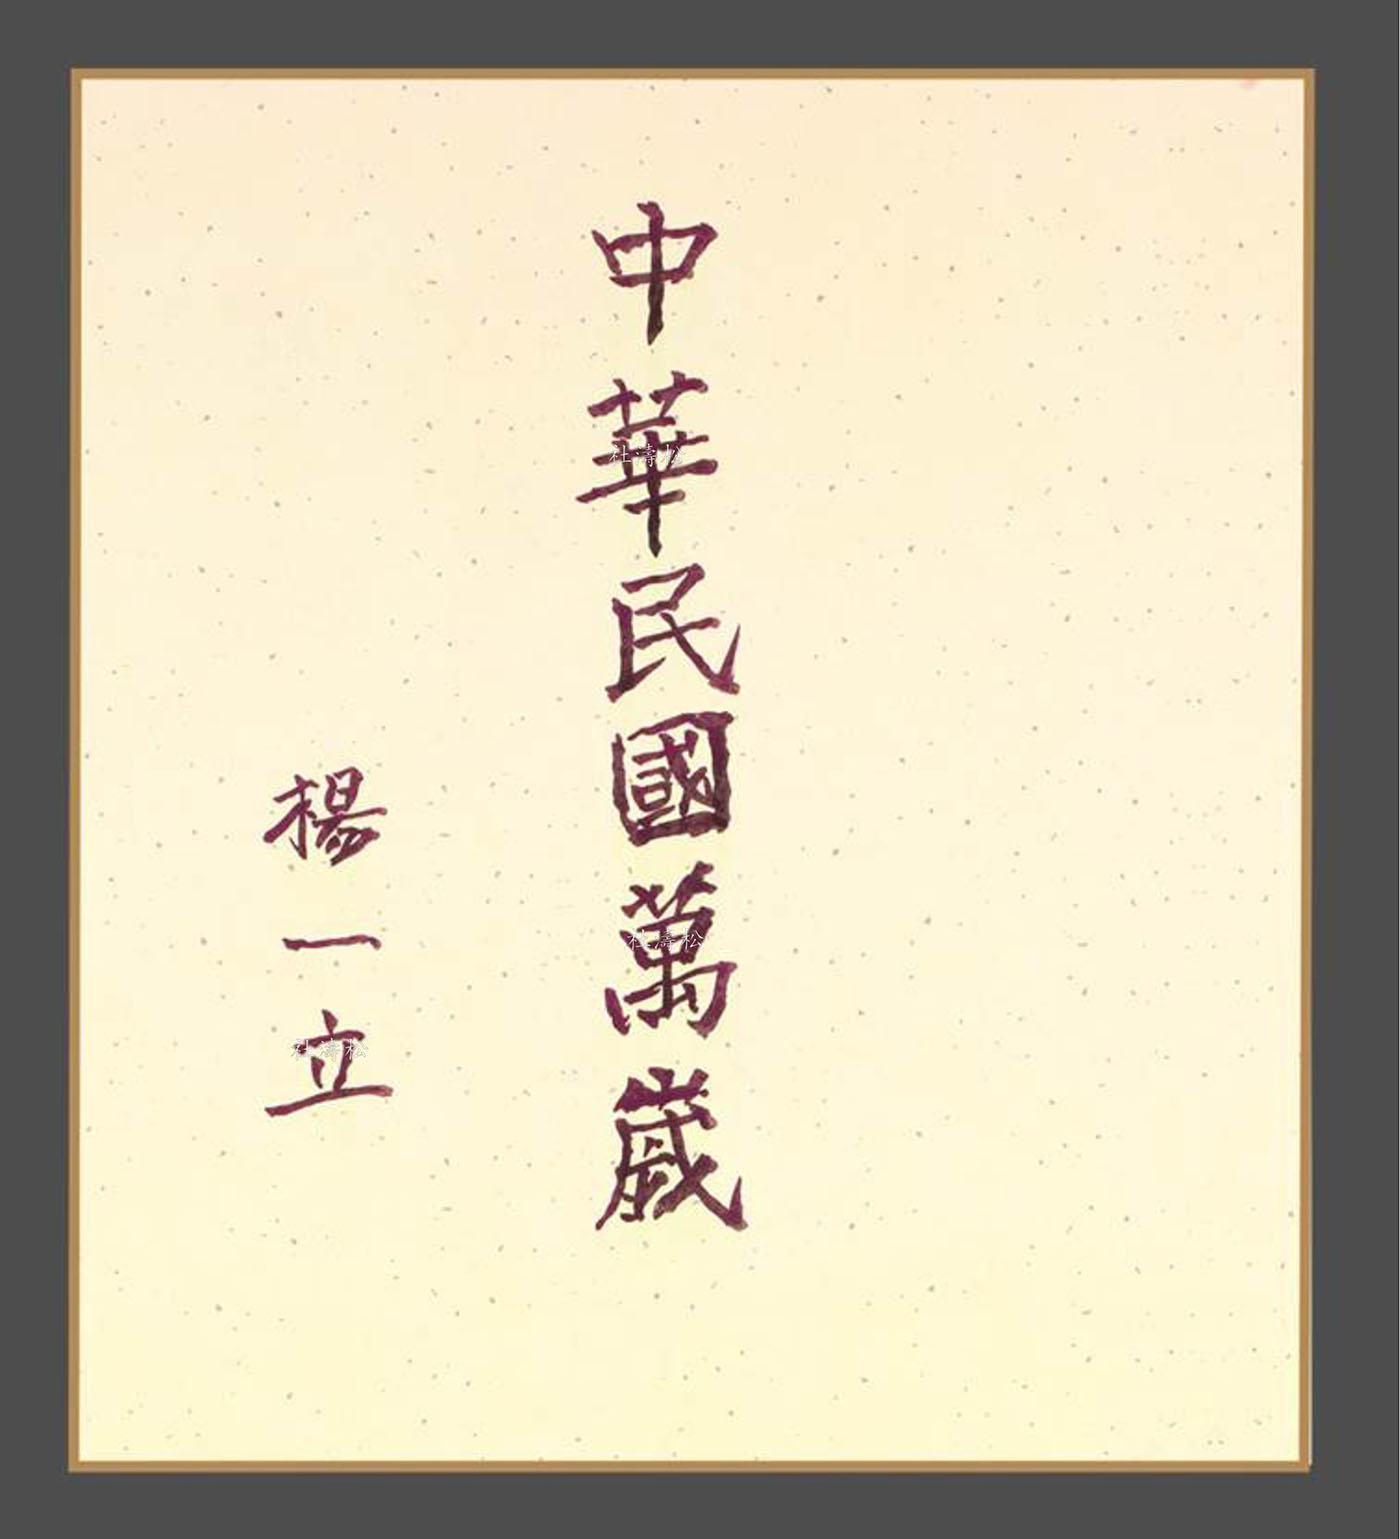 中華民國萬歲
楊一立
杜濤松
杜濤松
杜濤松